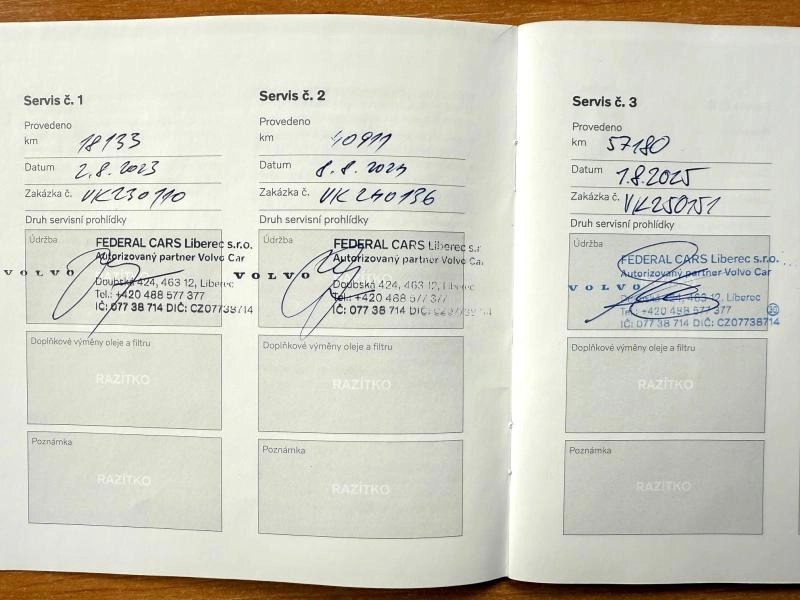 Servis č. 1
Provedeno
km 18133
Datum 2.8.2023
Zakázka č. VK230110
Druh servisní prohlídky
Údržba
FEDERAL CARS Liberec s.r.o.
Autorizovaný partner Volvo Car
VOLVO
Doubská 424, 463 12, Liberec
Tel.: +420 488 577 377
IČ: 077 38 714 DIČ: CZ07738714
Doplňkové výměny oleje a filtru
RAZÍTKO
Poznámka
RAZÍTKO
Servis č. 2
Provedeno
km 40911
Datum 8.8.2024
Zakázka č. VK240136
Druh servisní prohlídky
Údržba
FEDERAL CARS Liberec s.r.
Autorizovaný partner Volvo Car
VOLVO
Doubská 424, 463 12, Liberec
Tel.: +420 488 577 377
IČ: 077 38 714 DIČ: CZ07738714
Doplňkové výměny oleje a filtru
RAZÍTKO
Poznámka
RAZÍTKO
Servis č. 3
Provedeno
km 57180
Datum 1.8.2025
Zakázka č. VK250151
Druh servisní prohlídky
Údržba
FEDERAL CARS Liberec s.r.o.
Autorizovaný partner Volvo Car
VOLVO
424, 463 12, Liberec
Tel.: +420 488 577 377
IČ: 077 38 714 DIČ: CZ07738714
Doplňkové výměny oleje a filtru
RAZÍTKO
Poznámka
RAZÍTKO